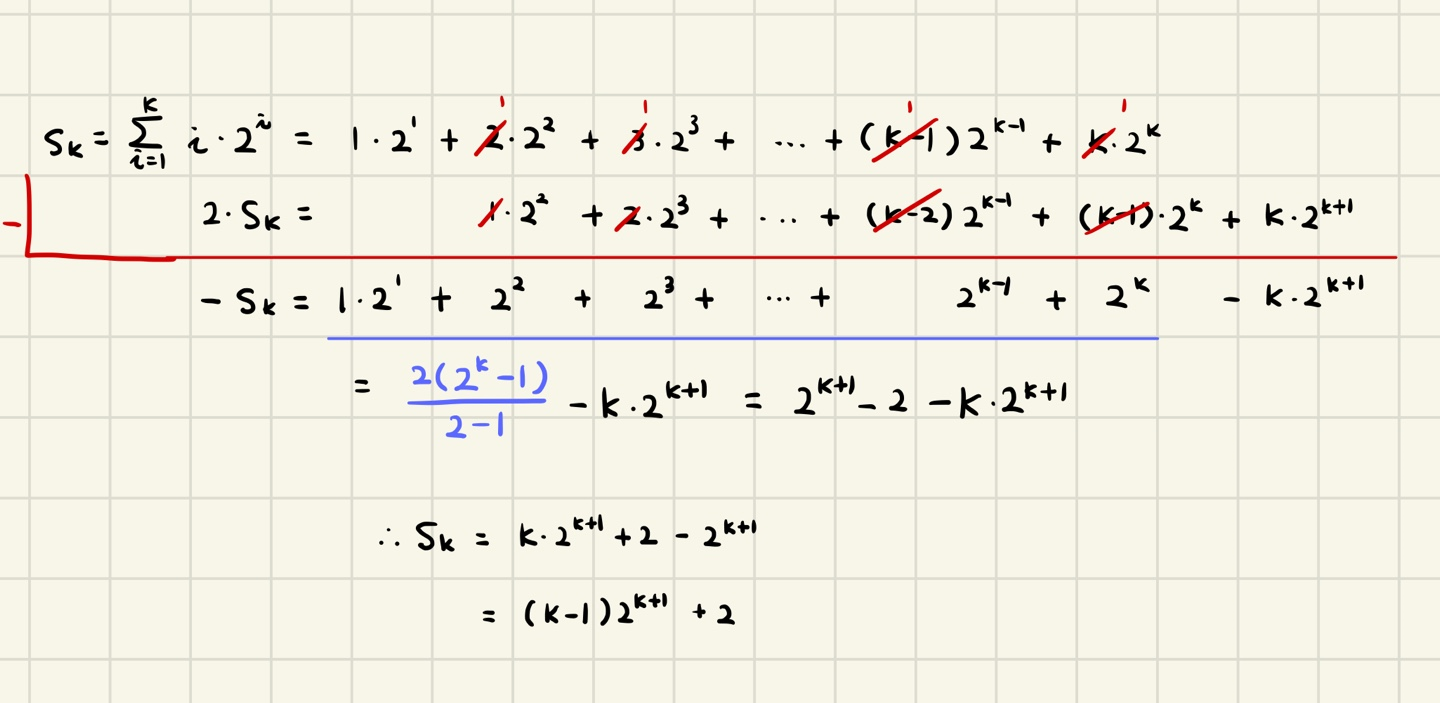 Sₖ = ∑ᵢ₌₁ᵏ i · 2ⁱ = 1 · 2¹ + 2 · 2² + 3 · 2³ + ... + (k-1) 2ᵏ⁻¹ + k · 2ᵏ
1 1 1 1
- 2 · Sₖ = 1 · 2² + 2 · 2³ + ... + (k-2) 2ᵏ⁻¹ + (k-1) · 2ᵏ + k · 2ᵏ⁺¹
- Sₖ = 1 · 2¹ + 2² + 2³ + ... + 2ᵏ⁻¹ + 2ᵏ - k · 2ᵏ⁺¹
= 2(2ᵏ-1)/(2-1) - k · 2ᵏ⁺¹ = 2ᵏ⁺¹ - 2 - k · 2ᵏ⁺¹
∴ Sₖ = k · 2ᵏ⁺¹ + 2 - 2ᵏ⁺¹
= (k-1) 2ᵏ⁺¹ + 2